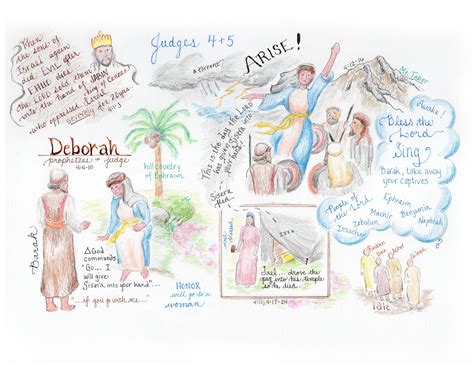 Judges 4+5
Then
the sons of
Israel again
did EVIL after
EHUD died...
the LORD sold them
into the hand of JABIN
king of Canaan
who oppressed Israel
severely for 20 yrs
4:1-3
a torrent
ARISE!
4:12-16
Mt. Tabor
This is the day the Lord
has given Sisera into
your hand!
Sisera
fled...
Awake!
Bless the
Lord
Sing
Barak, take away
your captives
People of
the Lord
Ephraim
Machir Benjamin
Zebulun
Issachar
Naphtali
Deborah
prophetess + judge
hill country
of Ephraim
Barak
God
commands
"Go... I
will give
Sisera into your hand"...
..."if you go with me"...
HONOR
will go to a
woman
Jael... drove the
peg into his temple
so he died.
Reuben
Dan
Gilead
Asher
idle